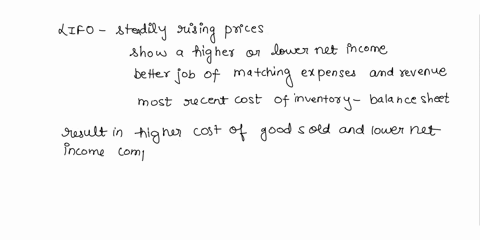 LIFO - steadily rising prices
show a higher or lower net income
better job of matching expenses and revenue
most recent cost of inventory - balance sheet
result in higher cost of good sold and lower net
income com